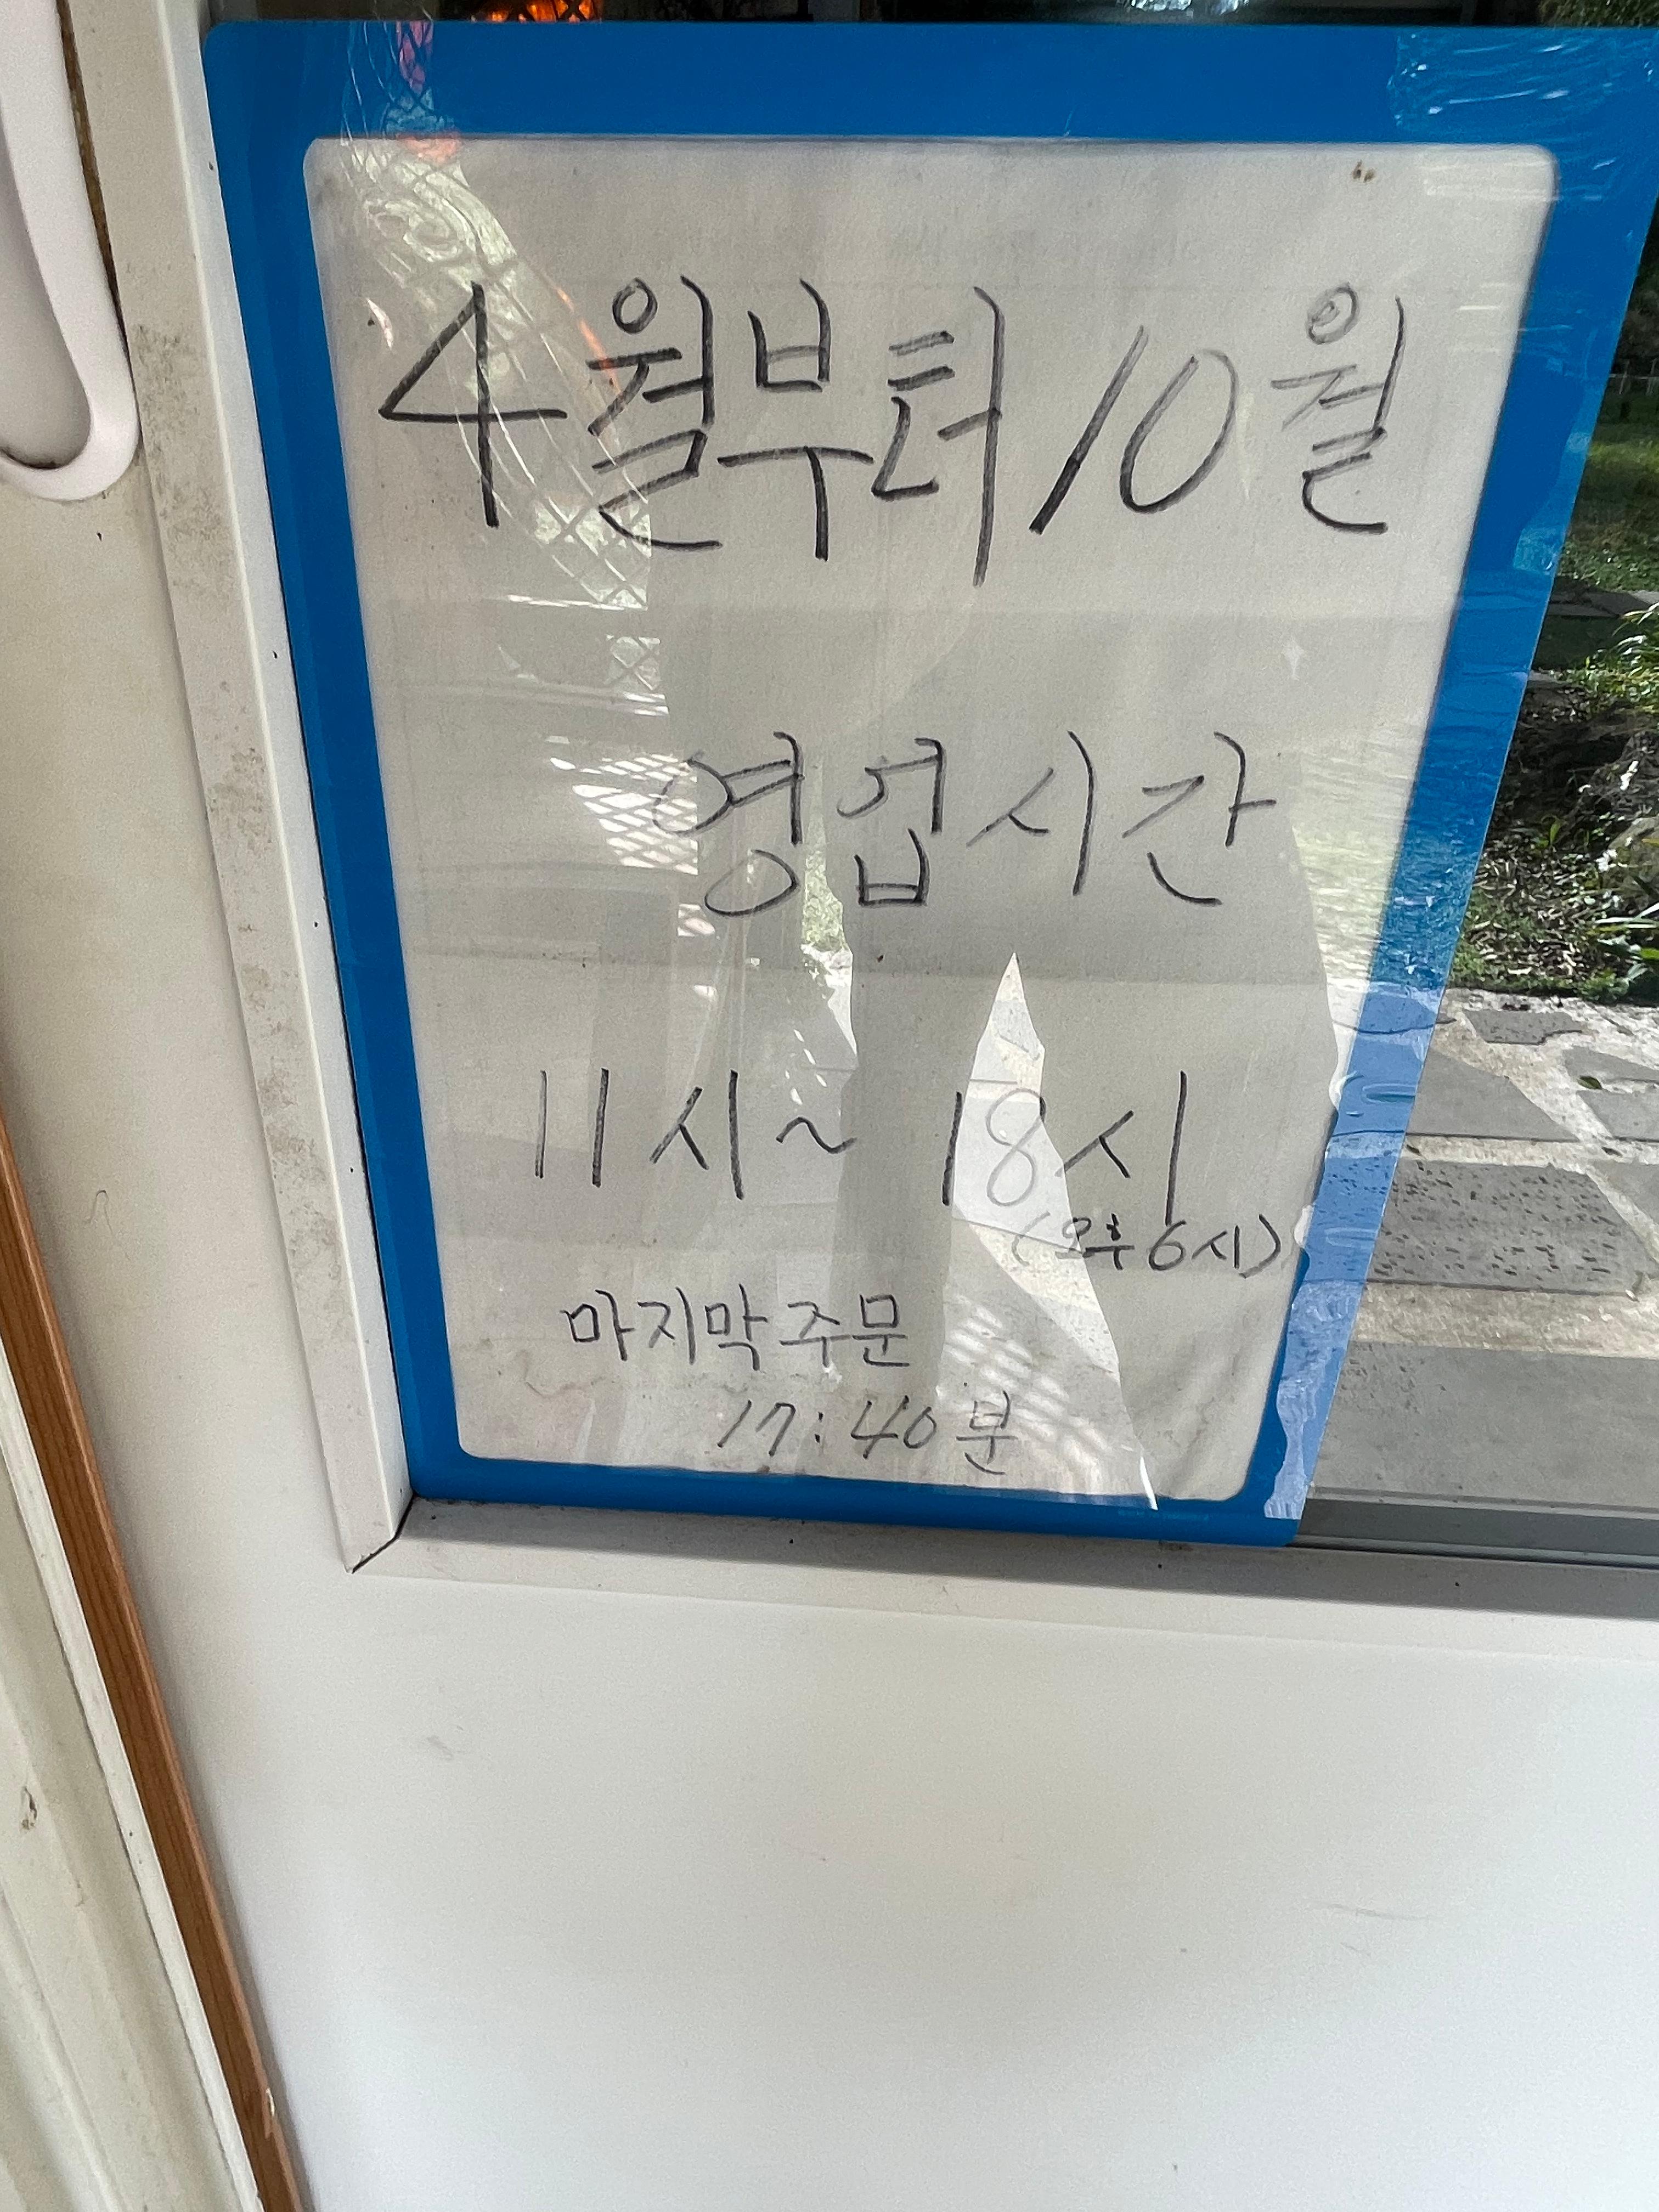 4월부터 10월
영업시간
11시~ 18시
(오후 6시)
마지막 주문
17:40분